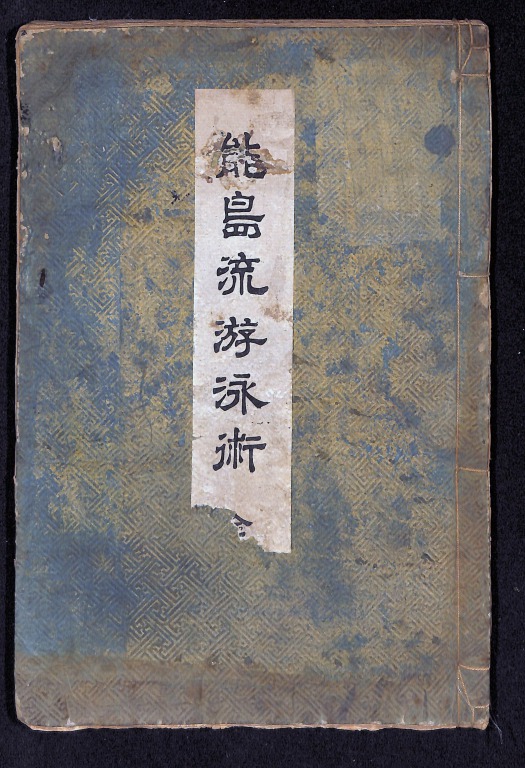 能島流游泳術